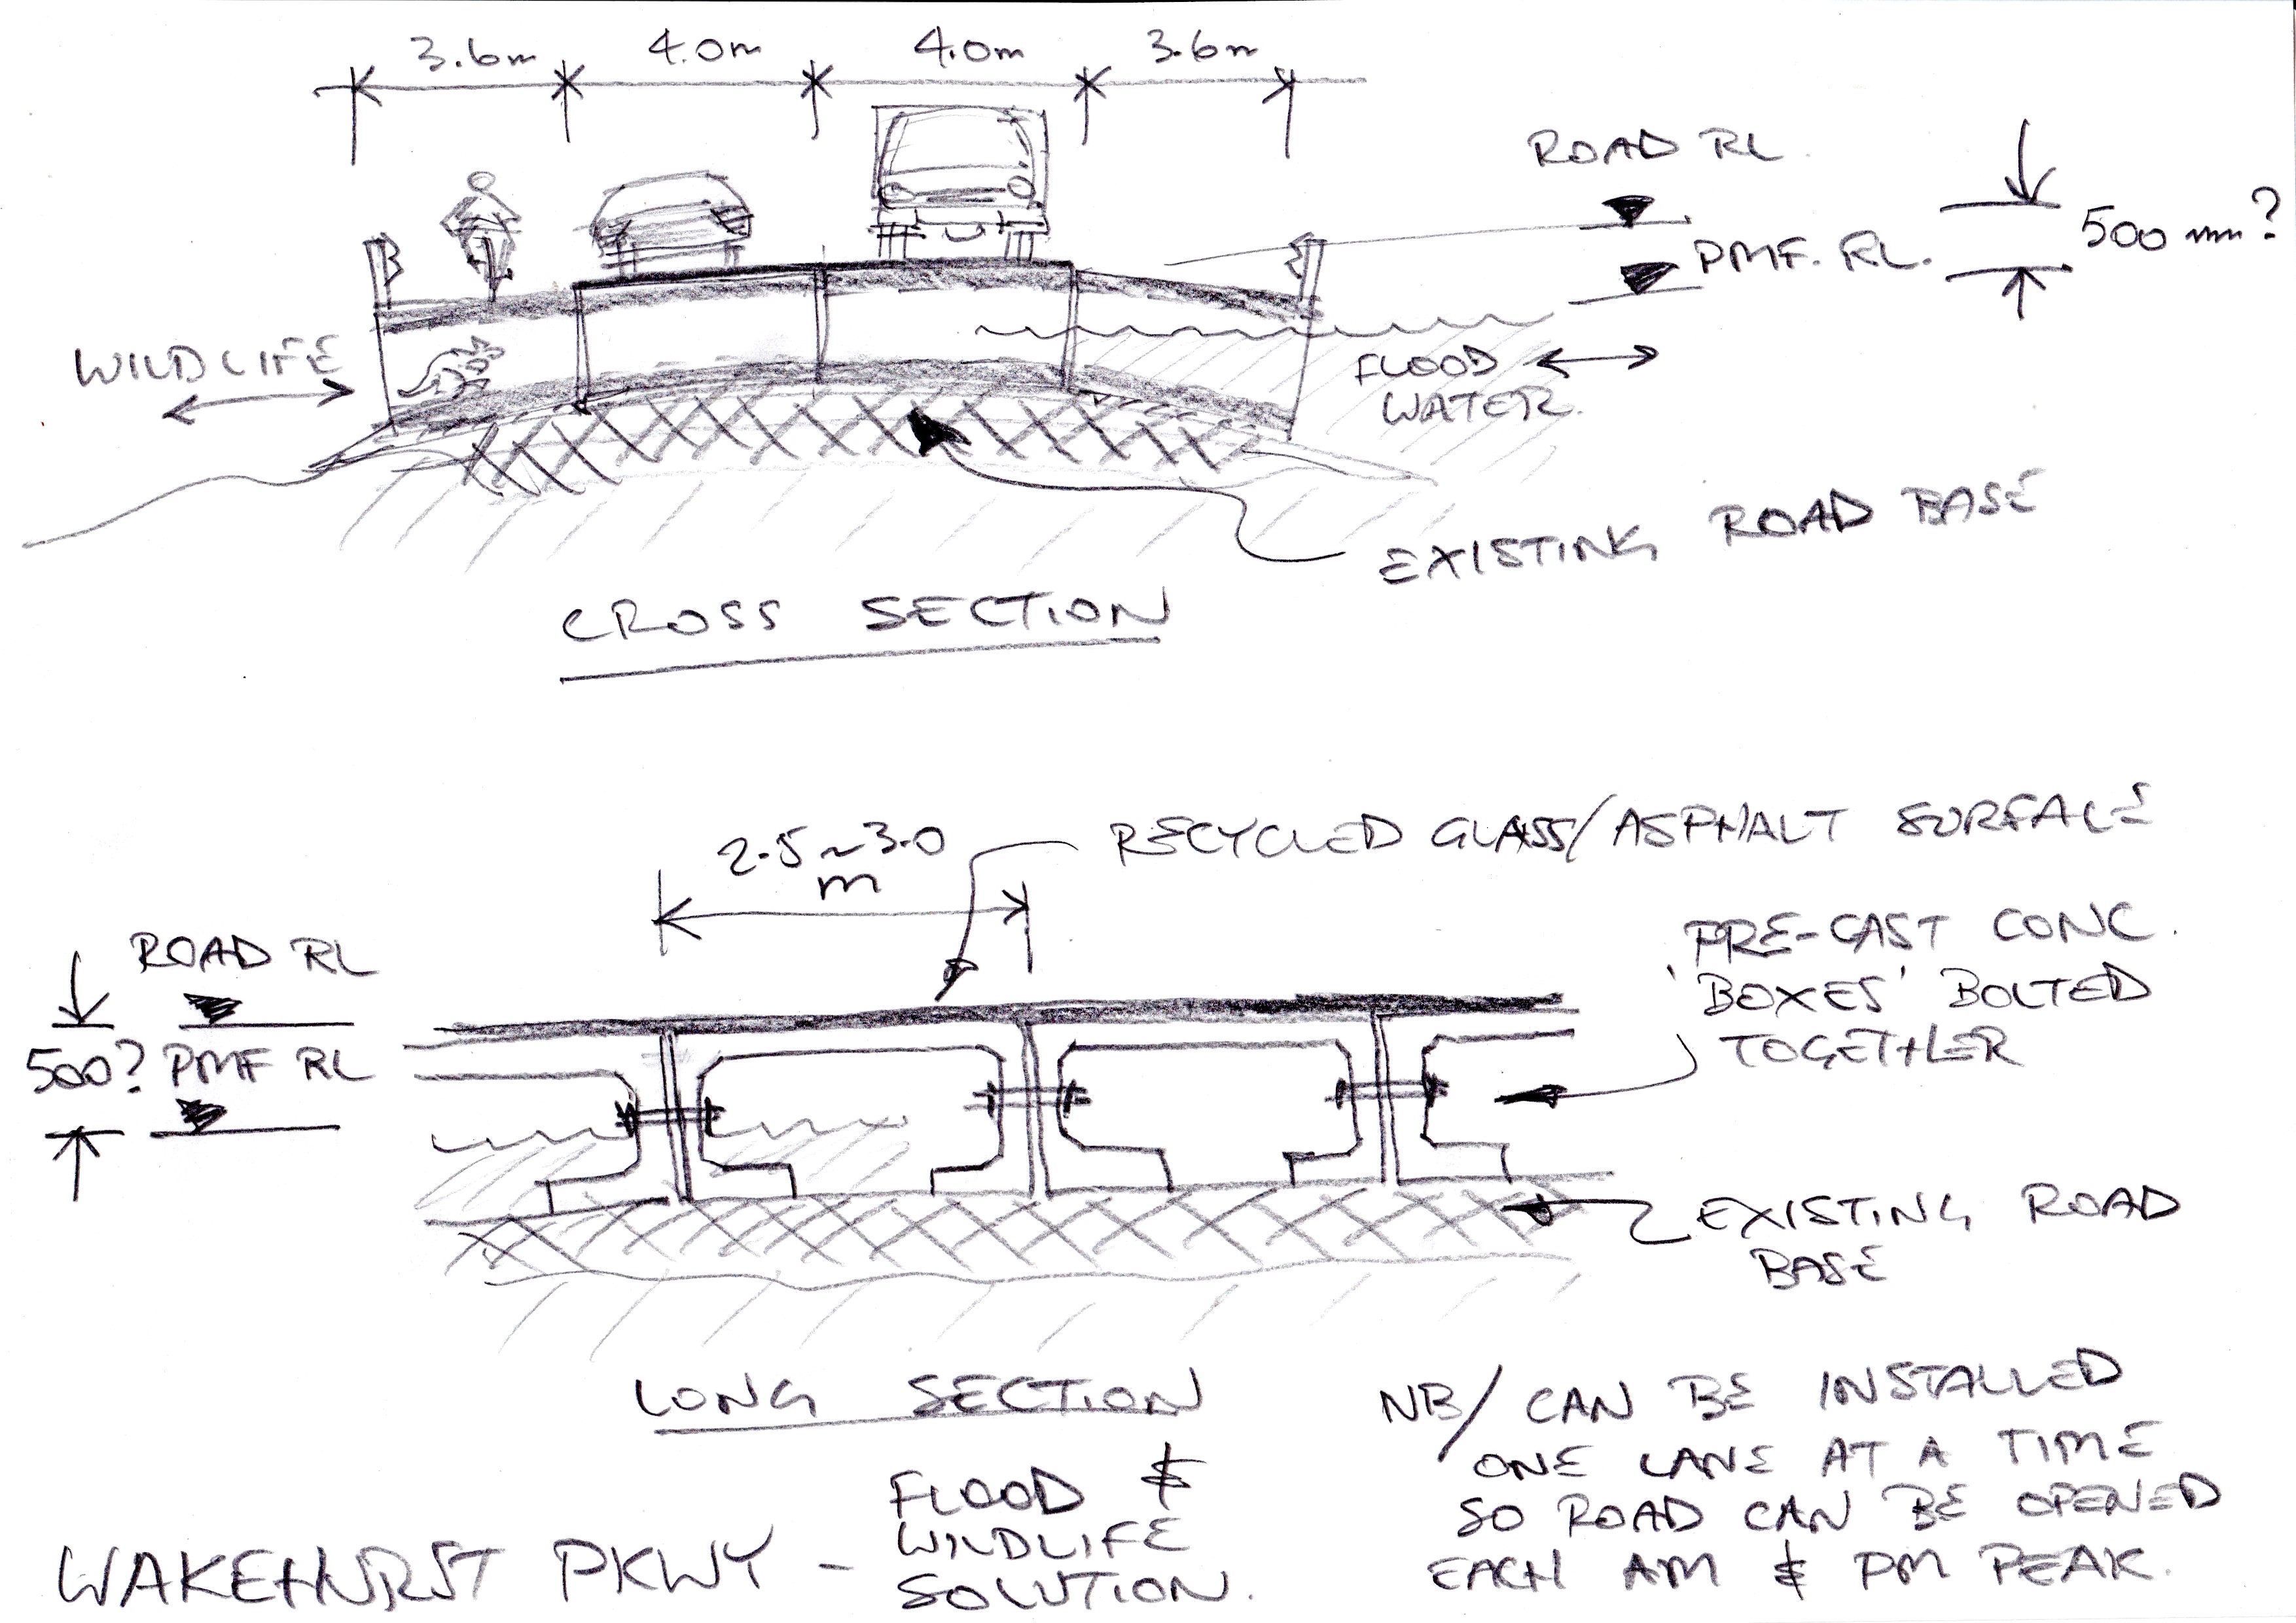 3.6m 4.0m 4.0m 3.6m
ROAD RL.
PMF. RL.
500 mm?
WILDLIFE
FLOOD
WATER.
EXISTING ROAD BASE
CROSS SECTION
2.5~3.0
m
RECYCLED GLASS/ASPHALT SURFACE
ROAD RL
500? PMF RL
PRE-CAST CONC.
'BOXES' BOLTED
TOGETHER
EXISTING ROAD
BASE
LONG SECTION
NB/ CAN BE INSTALLED
ONE LANE AT A TIME
SO ROAD CAN BE OPENED
EACH AM & PM PEAK.
WAKEHURST PKWY - FLOOD &
WILDLIFE
SOLUTION.